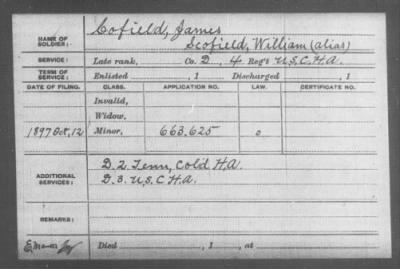 NAME OF SOLDIER: Cofield, James
Scofield, William (alias)
SERVICE: Late rank, Co. D, 4 Reg't U.S.C.H.A.
TERM OF SERVICE: Enlisted , 1 Discharged , 1
DATE OF FILING. CLASS. APPLICATION NO. LAW. CERTIFICATE NO.
Invalid,
Widow,
1897 Oct, 12 Minor, 663.625 o
ADDITIONAL SERVICES: D. 2 Tenn, Cold H.A.
D. 3. U.S.C H.A.
REMARKS:
Died , 1 , at